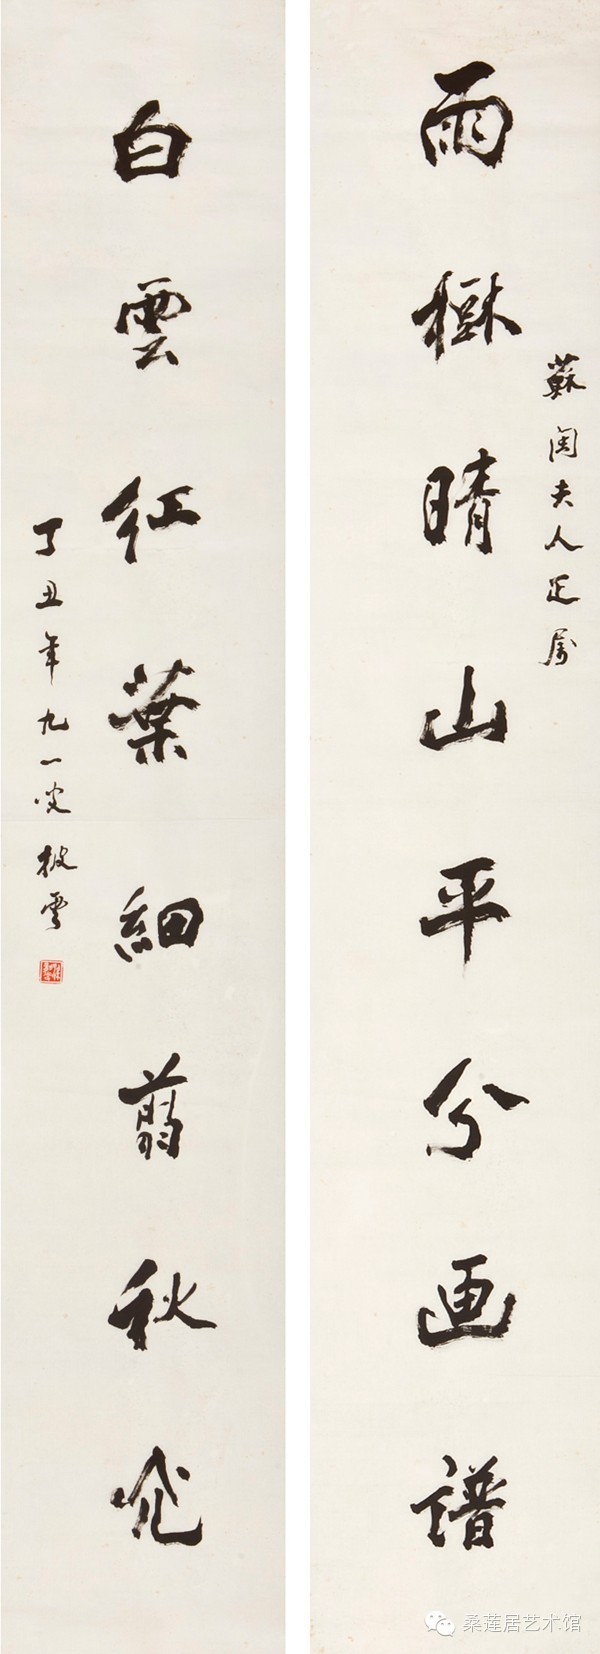 雨樹晴山平分画譜
蘇閣夫人正属
白雲紅葉細翦秋光
丁丑年九一叟披雲
桑莲居艺术馆